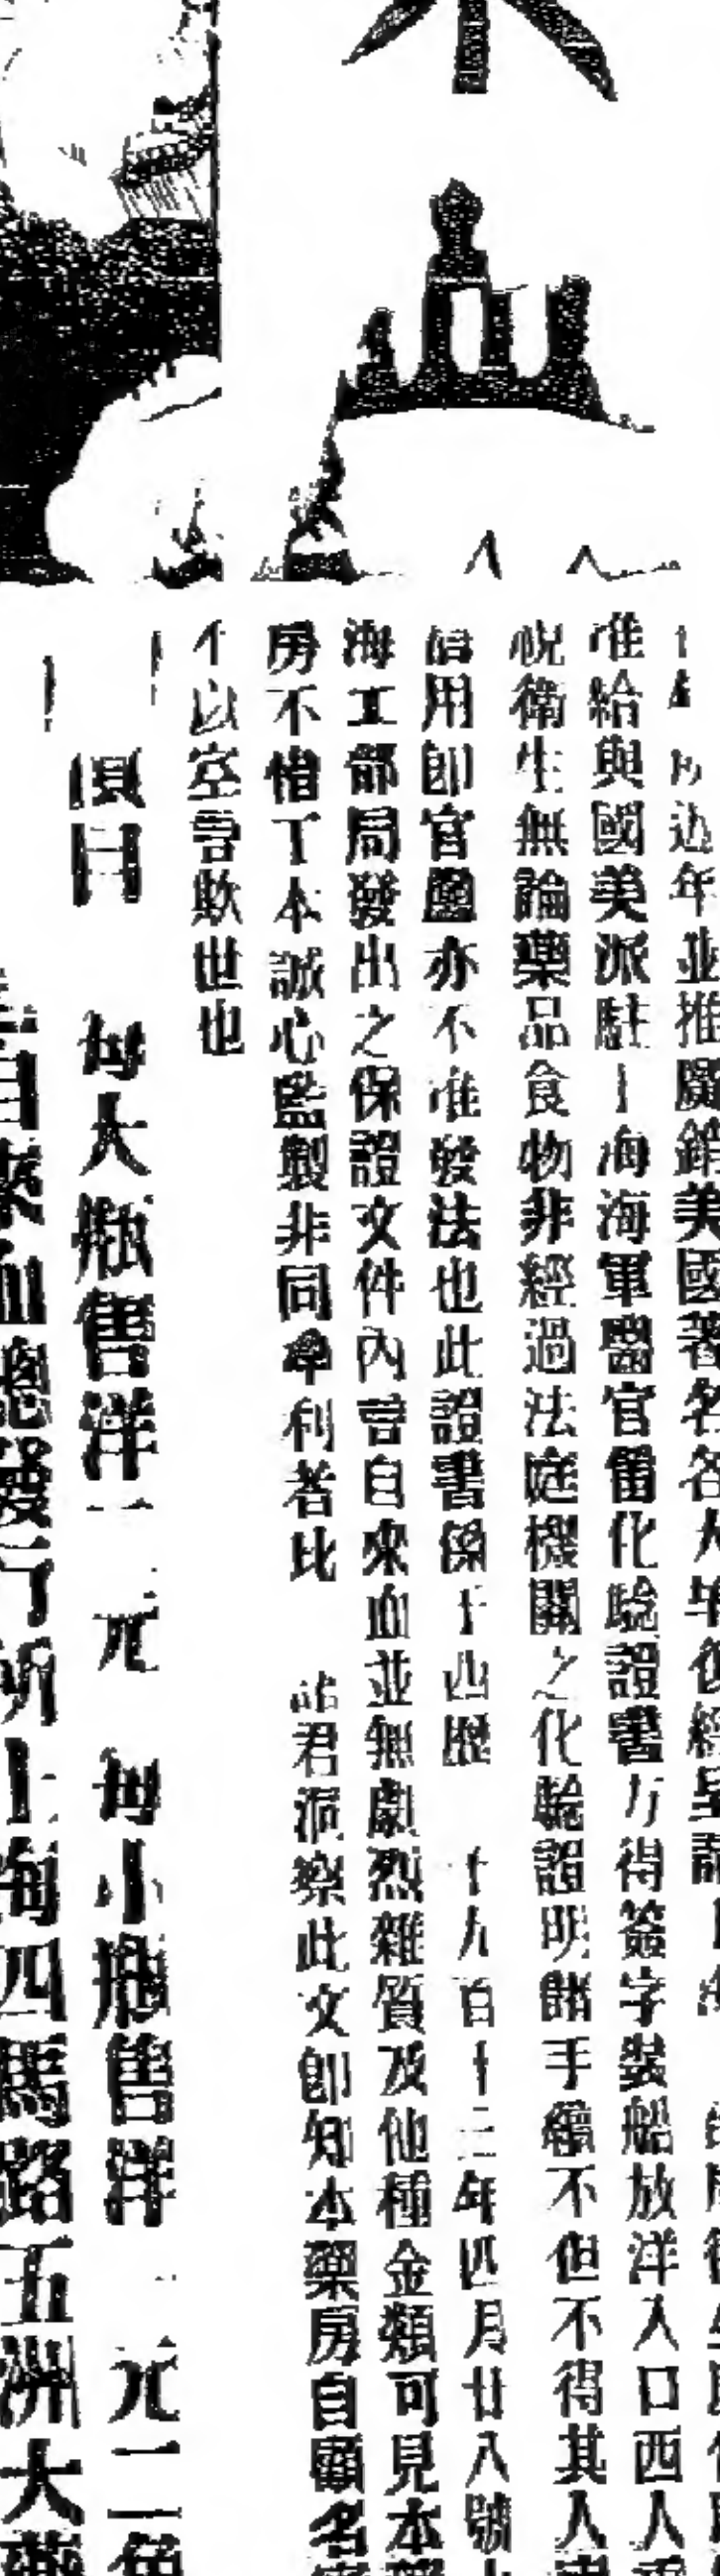 近年並推廣銷美國著名各大埠後經呈請
准給與國美派駐上海海軍醫官留化驗證書方得簽字裝船放洋入口西人重
視衛生無論藥品食物非經過法庭機關之化驗證明諸手續不但不得其人
信用卽官廳亦不准發法也此證書係于西歷一千九百十三年四月廿八號
海工部局發出之保證文件內言自來血並無劇烈雜質及他種金類可見本
房不惜工本誠心監製非同牟利者比 諸君洞察此文卽知本藥房自顧名
不以空言欺世也
價目 每大瓶售洋二元 每小瓶售洋一元二角
自來血總發行所上海四馬路五洲大藥